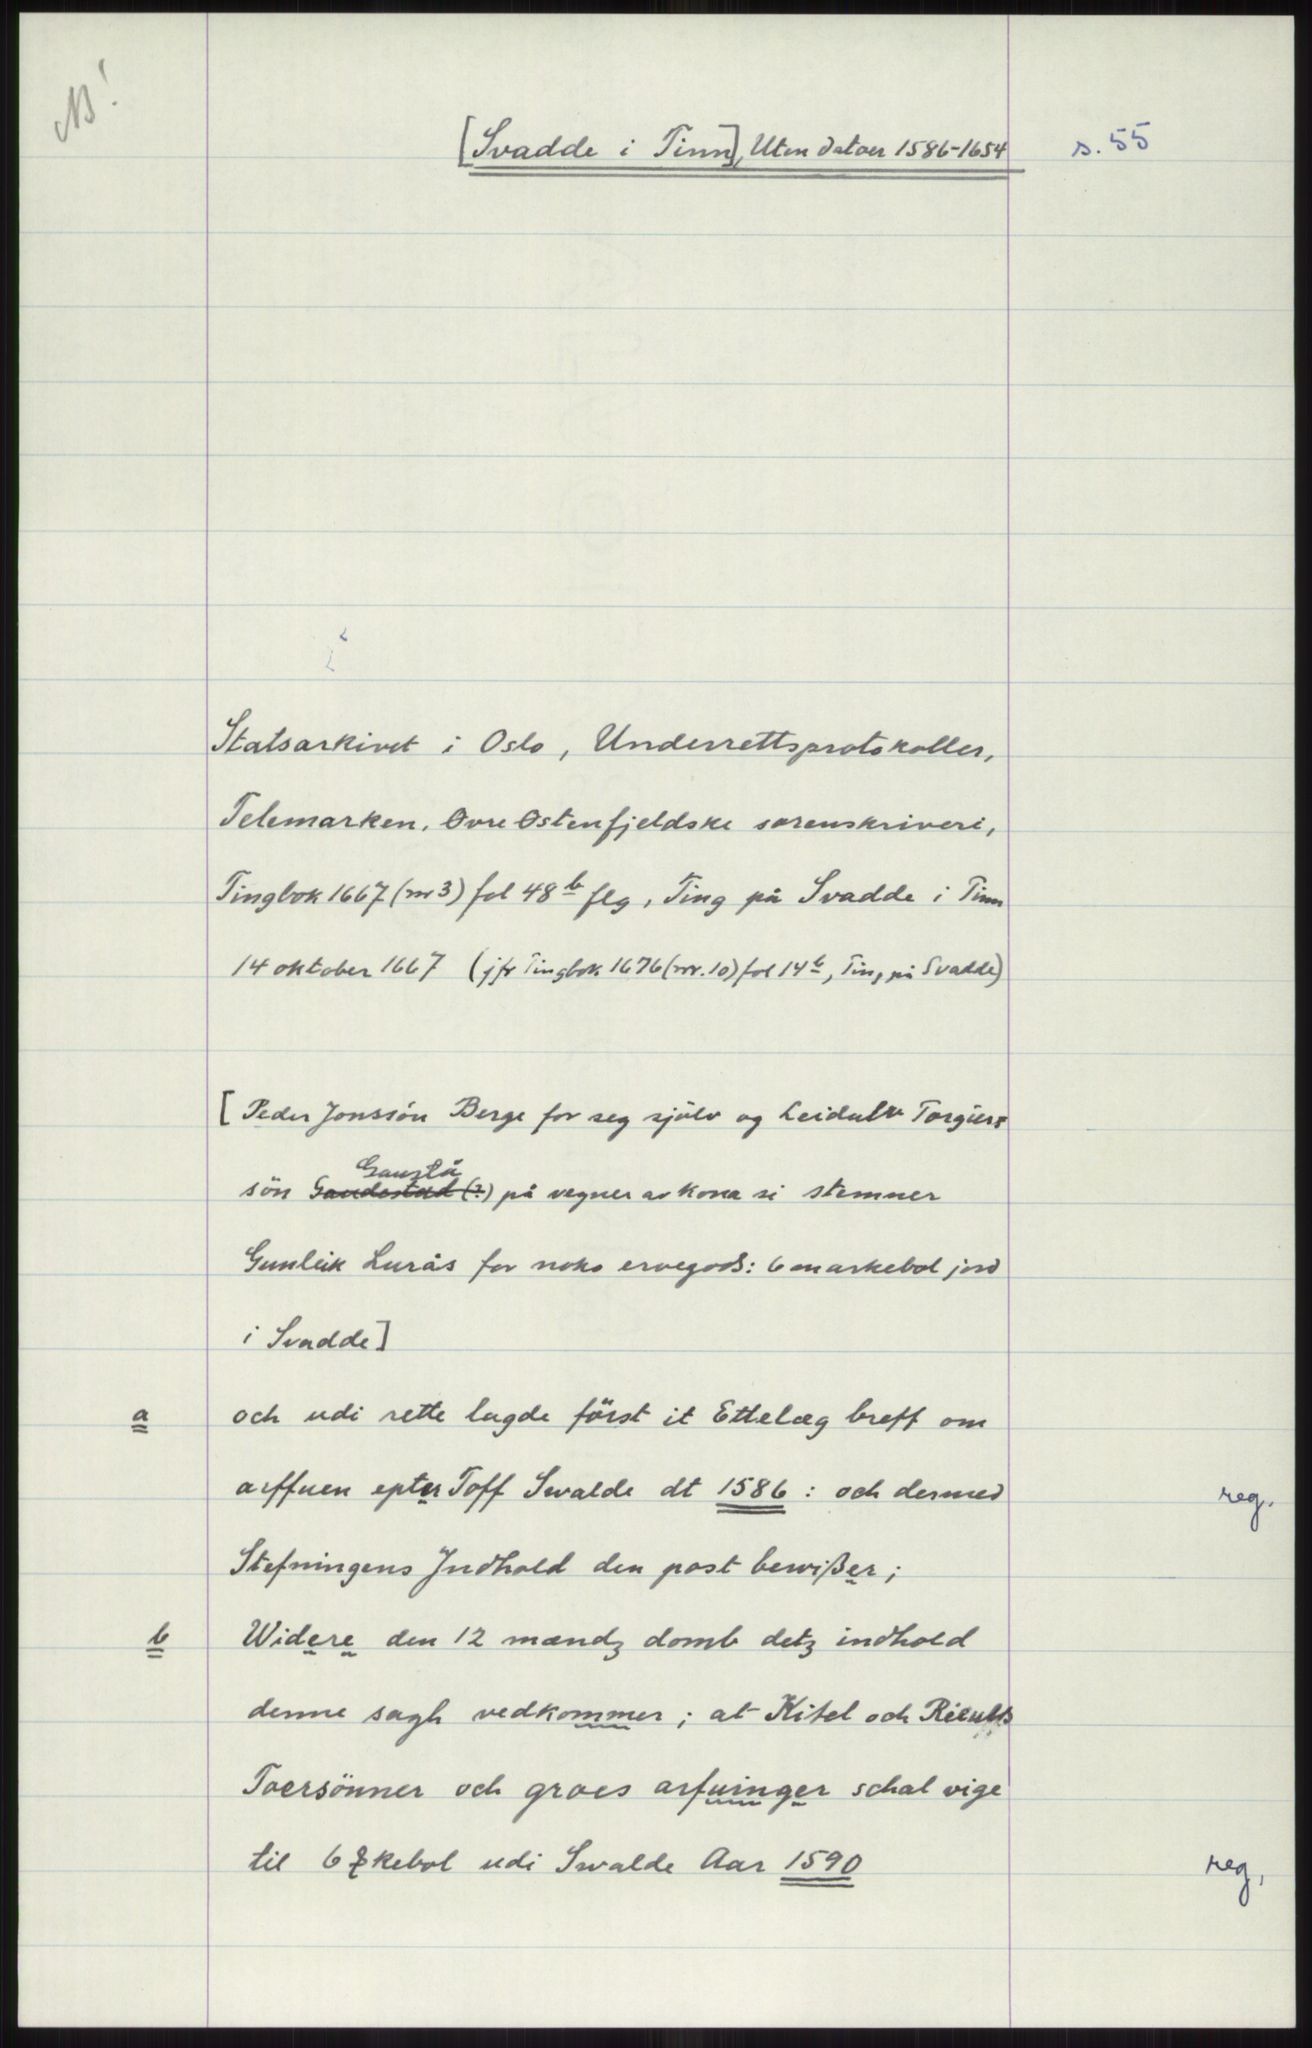 NB!
[Svadde i Tinn], Uten datoer 1586-1654 s. 55
Statsarkivet i Oslo, Underrettsprotokoller,
Telemarken. Øvre Østenfjeldske sorenskriveri,
Tingbok 1667 (nr 3) fol 48 b flg, Ting på Svadde i Tinn
14 oktober 1667 (jfr Tingbok 1676 (nr. 10) fol 14 b, Ting på Svadde)
[Peder Jonssön Berge for seg sjölv og Leidulv Torgiers
Gaustå
sön Gaudestad (?) på vegner av kona si stemner
Gunleik Lurås for noko ervegods: 6 markebol jord
i Svadde]
a och udi rette lagde först it Ettelæg breff om
arffuen epter Toff Swalde dt 1586 : och dermed reg.
Stefningens Indhold den post bewißer ;
b Widere den 12 mændz domb detz indhold
denne sagh vedkommer ; at Kitel och
Toersönner och groes arfuinger schal vige
til 6 kebol udi Swalde Aar 1590 reg.